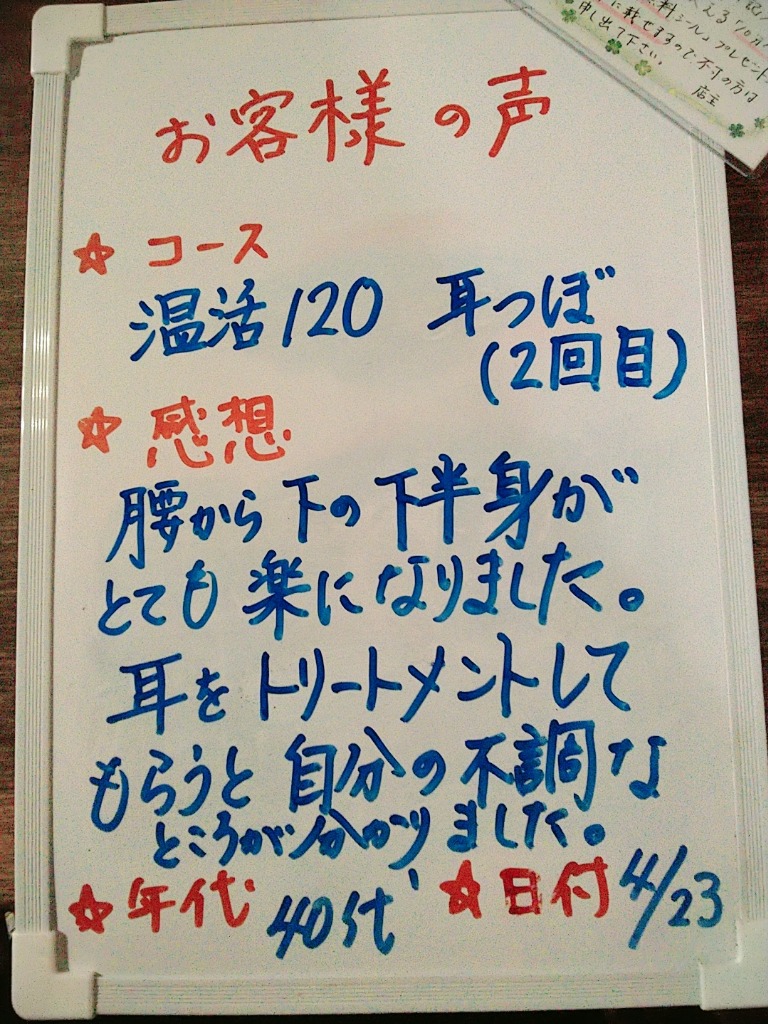 える「10分
無料シール」プレゼント
に載せするので不可の方は
申し出て下さい。
店主
お客様の声
☆ コース
温活120 耳つぼ
(2回目)
☆ 感想
腰から下の下半身が
とても楽になりました。
耳をトリートメントして
もらうと自分の不調な
ところが分かりました。
☆年代 40代 ☆日付 4/23